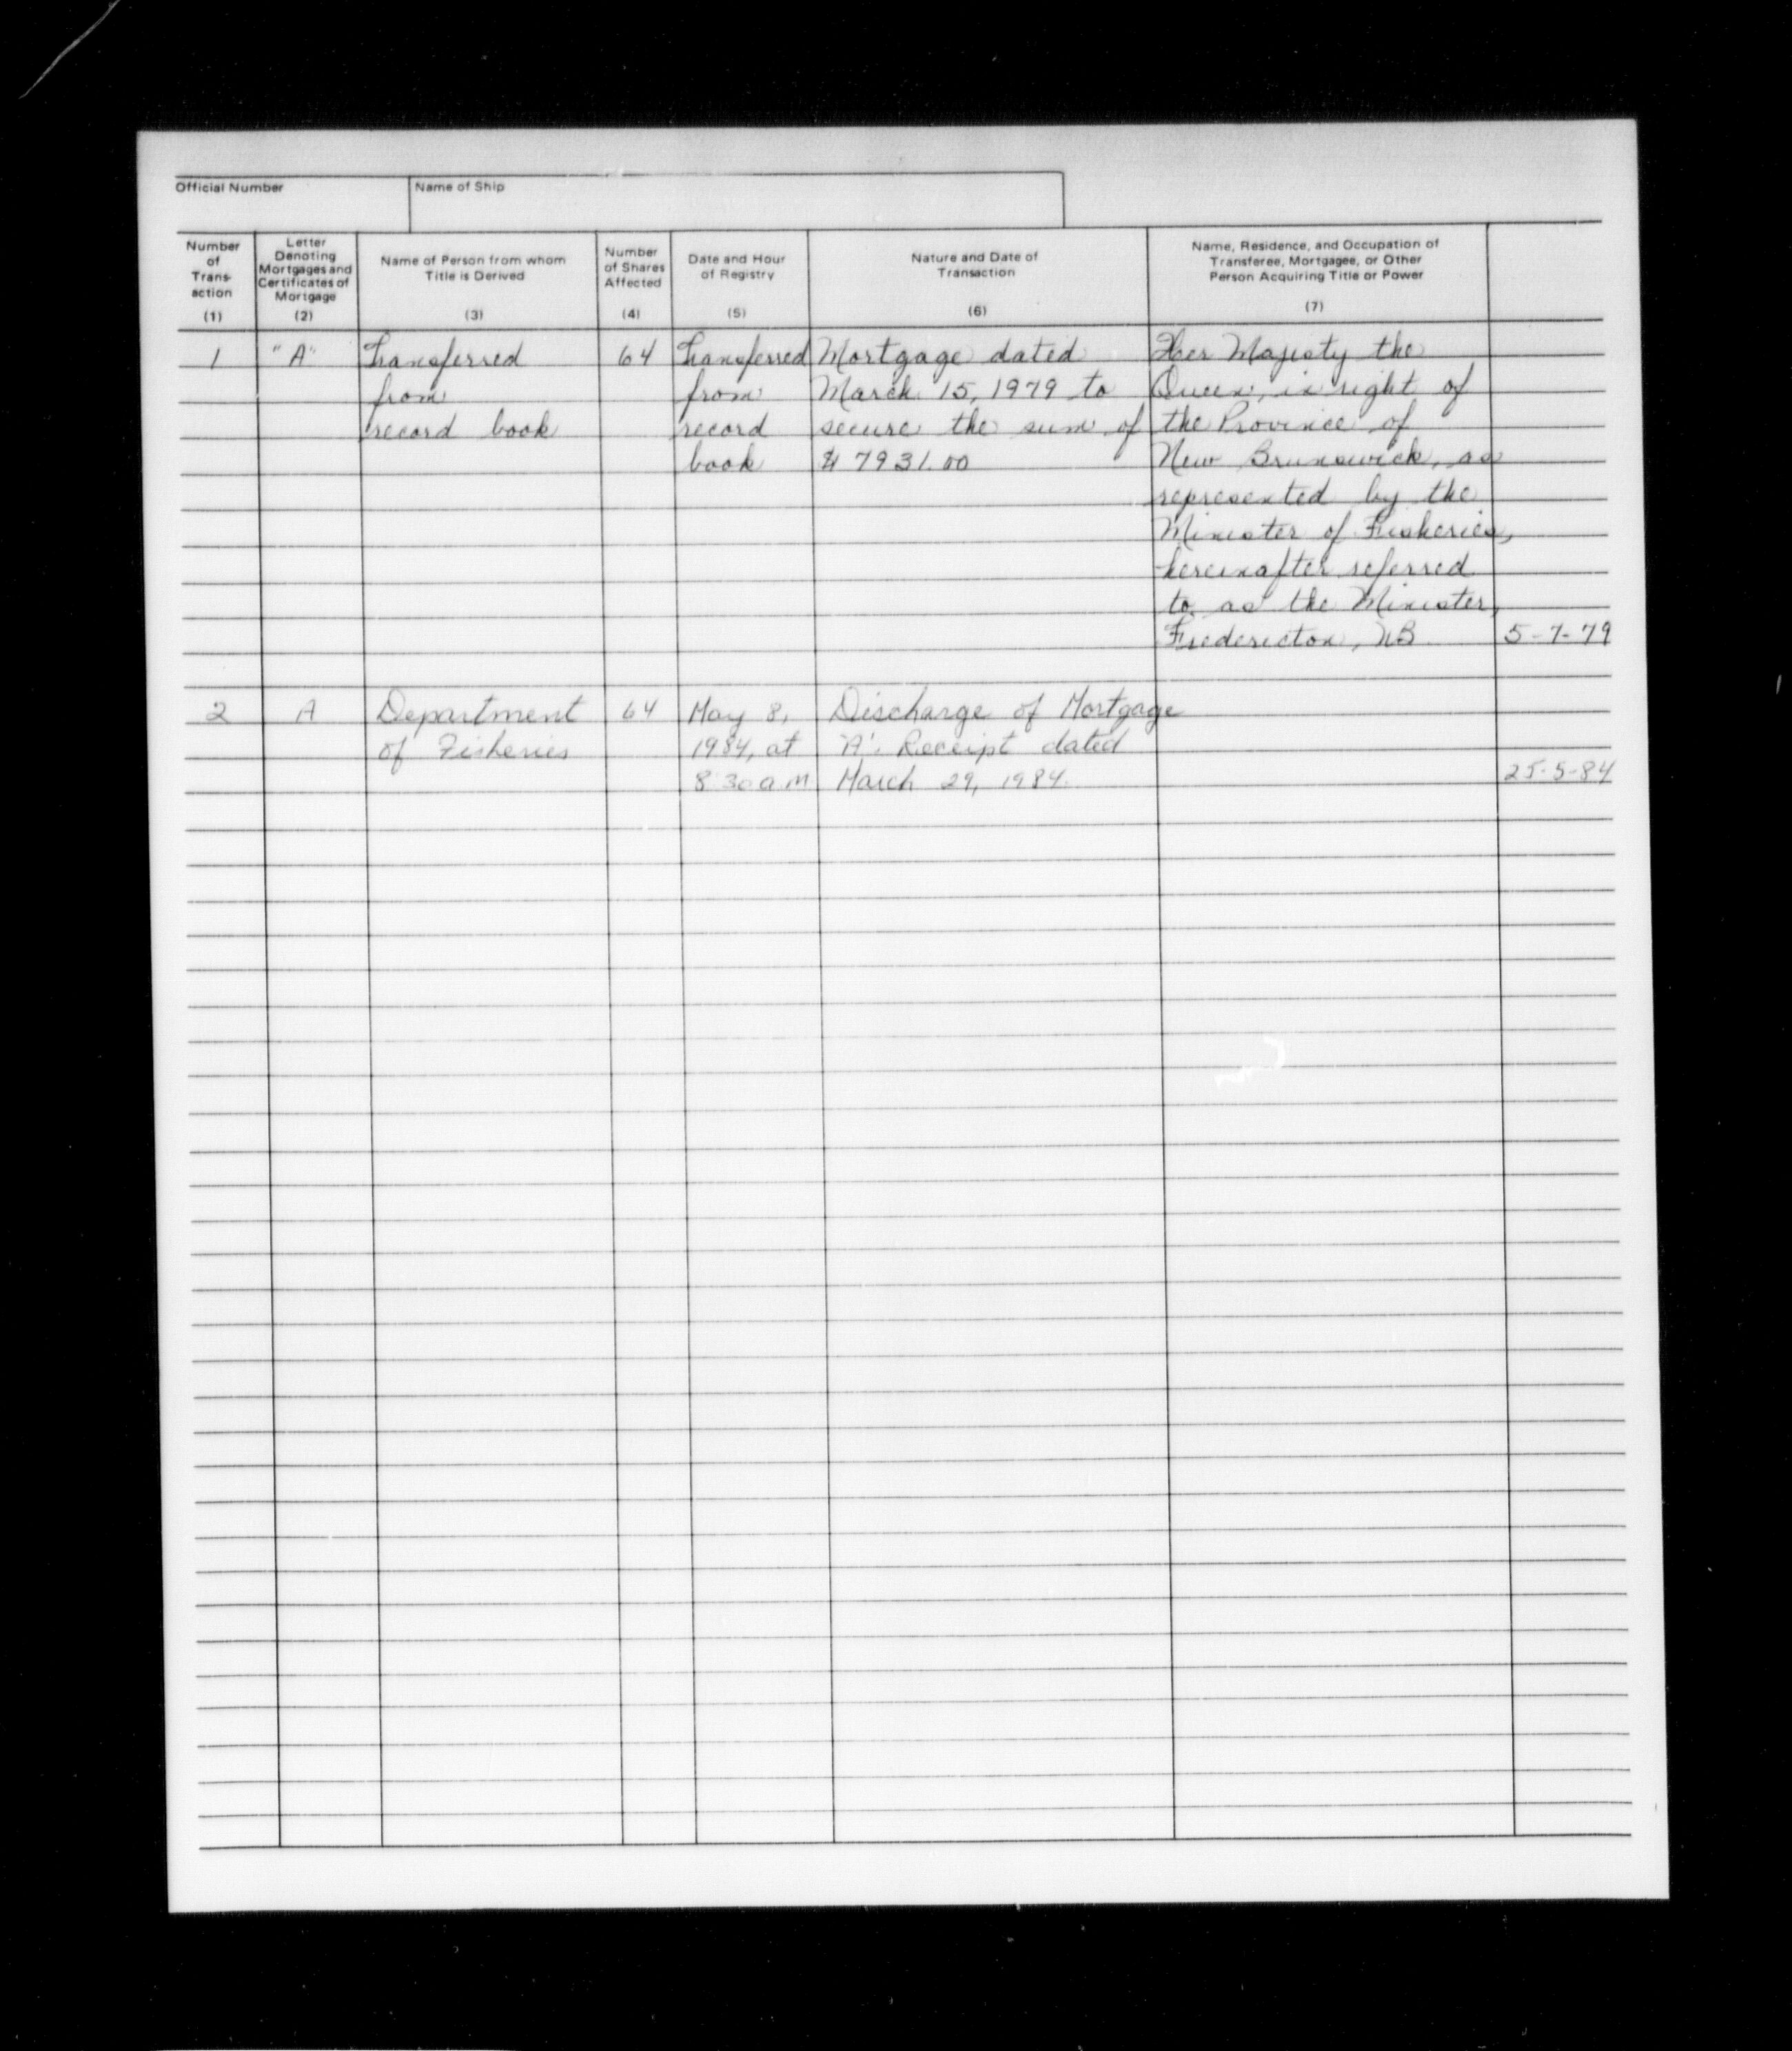 Official Number
Name of Ship
Number of Trans- action (1)
Letter Denoting Mortgages and Certificates of Mortgage (2)
Name of Person from whom Title is Derived (3)
Number of Shares Affected (4)
Date and Hour of Registry (5)
Nature and Date of Transaction (6)
Name, Residence, and Occupation of Transferee, Mortgagee, or Other Person Acquiring Title or Power (7)
1 "A" Transferred 64 Transferred Mortgage dated Her Majesty the
from from March 15, 1979 to Queen, in right of
record book record secure the sum of the Province of
book $ 7931.00 New Brunswick, as
represented by the
Minister of Fisheries,
hereinafter referred
to as the Minister,
Fredericton, NB 5-7-79
2 A Department 64 May 8, Discharge of Mortgage
of Fisheries 1984, at "A". Receipt dated
8:30 a.m March 29, 1984. 25-5-84